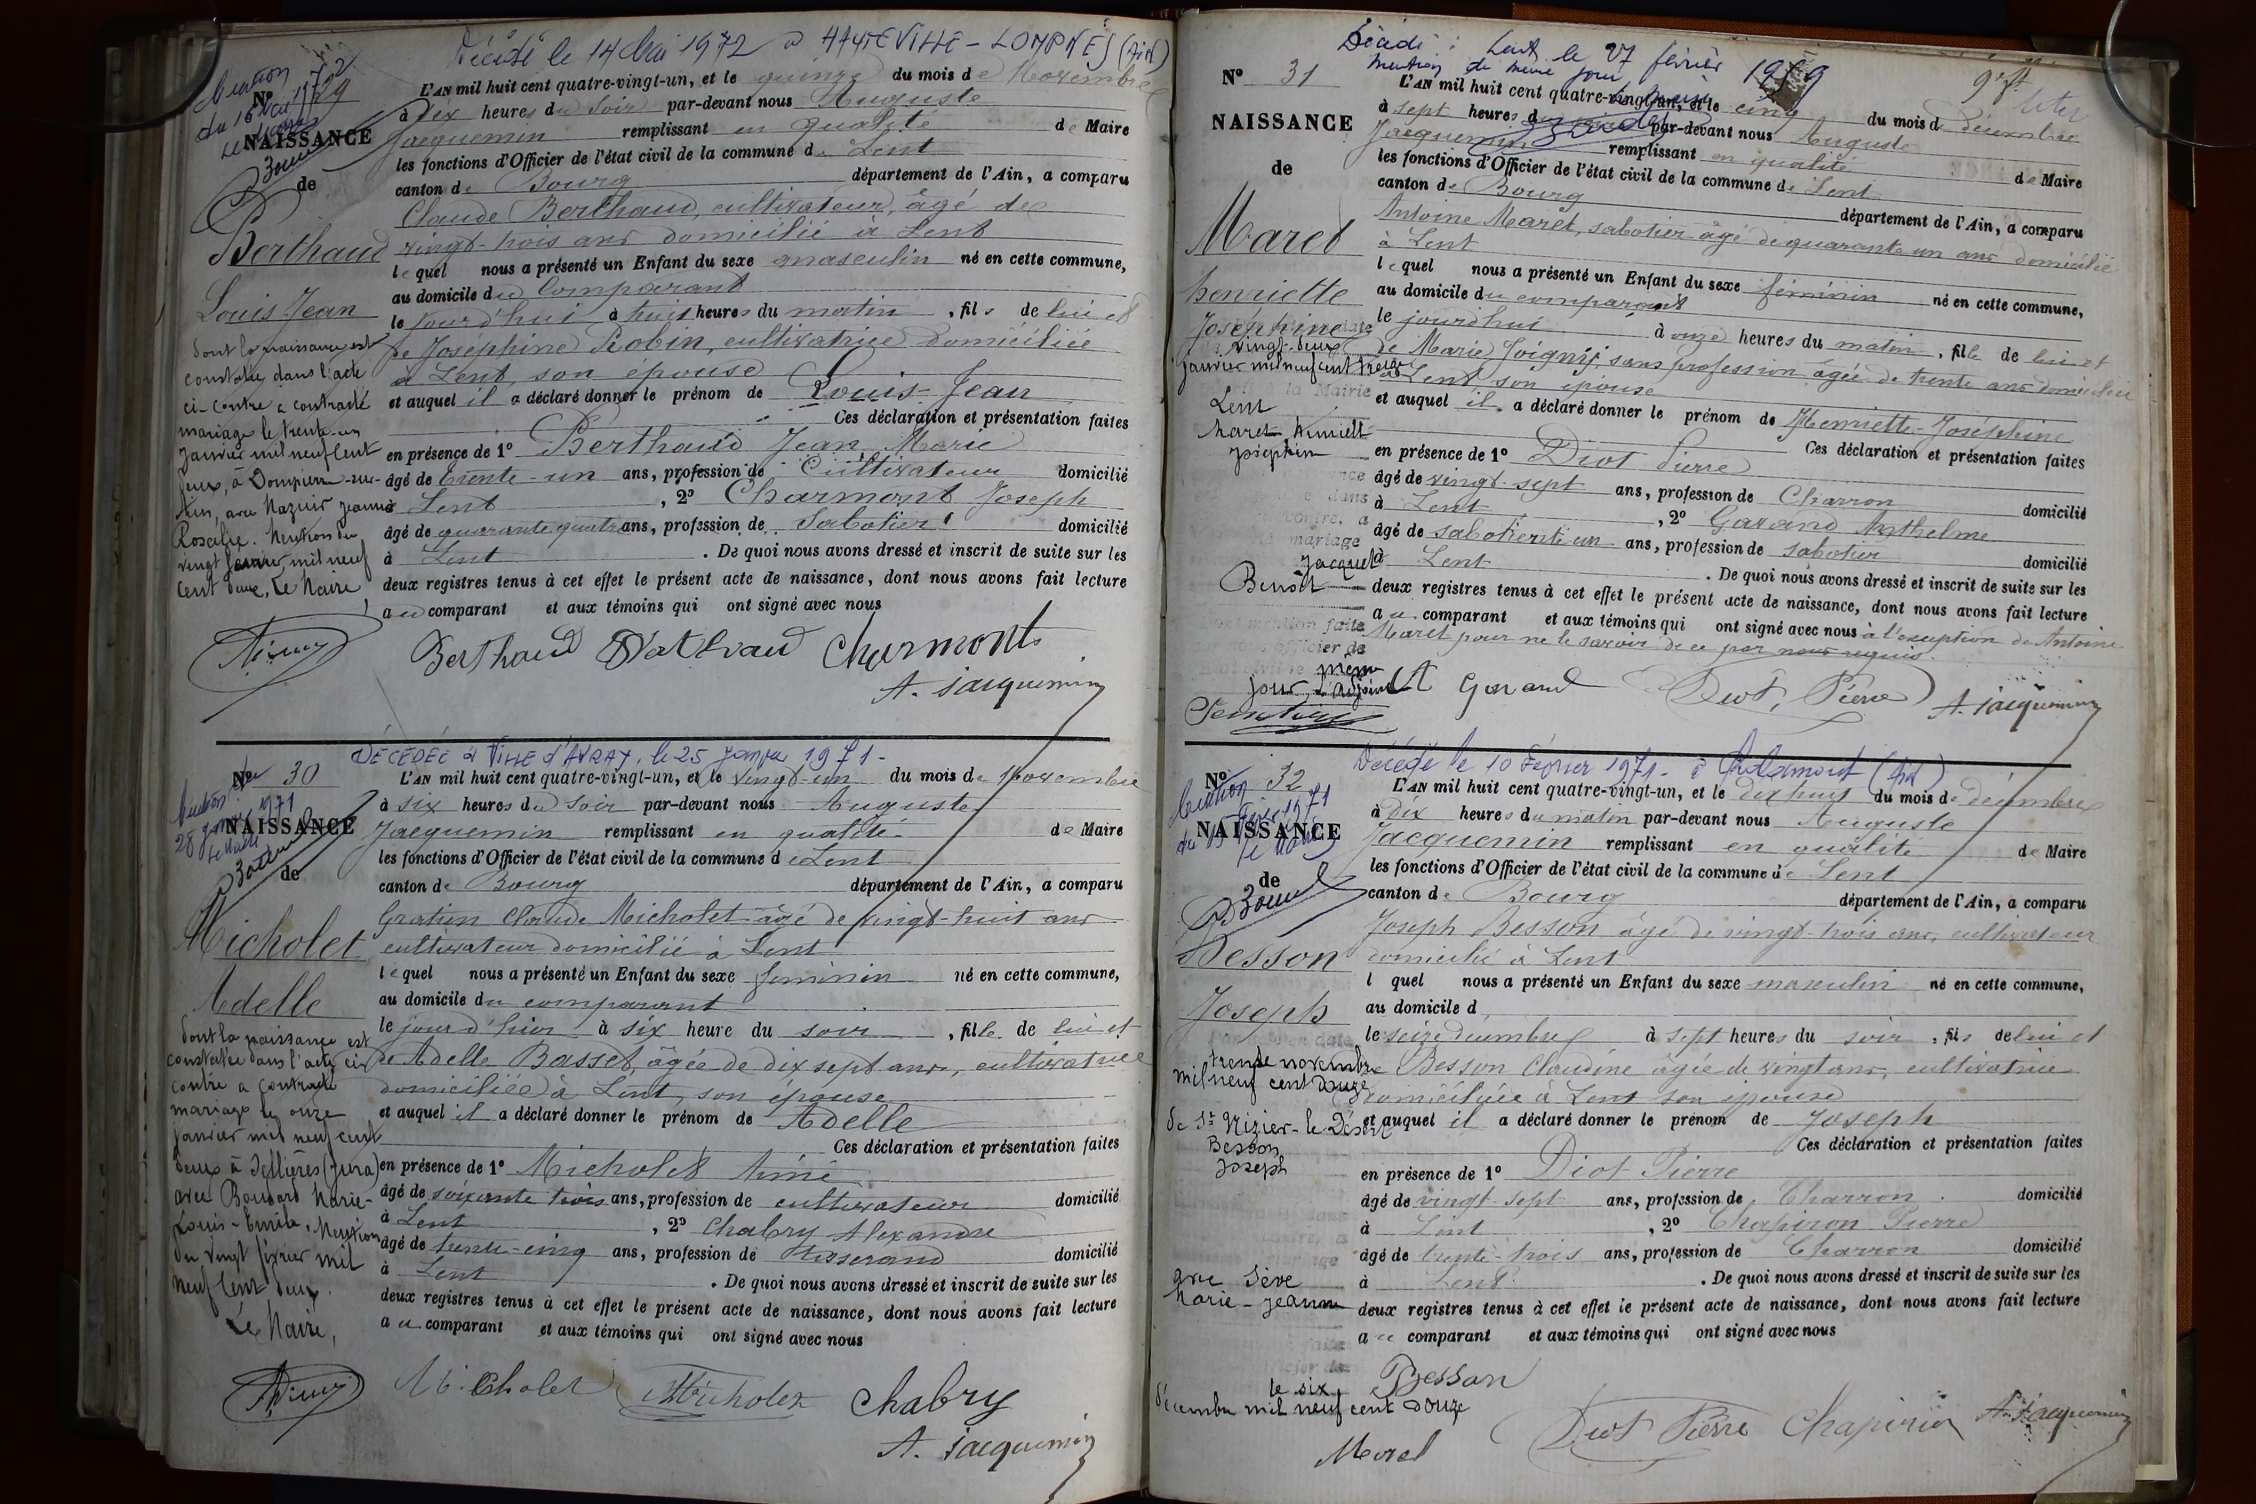 Décédé le 14 Mai 1972 à HAUTEVILLE-LOMPNES (Ain)
Mention
du 16 Mai 1972
Le Maire
N° 29
NAISSANCE
de
Berthaud
Louis Jean
dont la naissance est
constatée dans l'acte
ci-contre a contracté
mariage le trente-un
Janvier mil neuf cent
deux, à Dompierre-sur-
Ain, avec Mazuir Jeanne
Rosalie. Mention du
vingt février mil neuf
cent deux, Le Maire,
L'AN mil huit cent quatre-vingt-un, et le quinze du mois de Novembre
à dix heures du soir par-devant nous Auguste
Jacquemin remplissant en qualité de Maire
les fonctions d'Officier de l'état civil de la commune de Lent
canton de Bourg département de l'Ain, a comparu
Claude Berthaud, cultivateur, âgé de
vingt-trois ans domicilié à Lent
lequel nous a présenté un Enfant du sexe masculin né en cette commune,
au domicile du Comparant
le jourd'hui à huit heures du matin, fils de lui et
de Joséphine Robin, cultivatrice domiciliée
à Lent, son épouse
et auquel il a déclaré donner le prénom de Louis-Jean
Ces déclaration et présentation faites
en présence de 1° Berthaud Jean Marie
âgé de trente-un ans, profession de Cultivateur domicilié
à Lent, 2° Charmont Joseph
âgé de quarante quatre ans, profession de Sabotier domicilié
à Lent. De quoi nous avons dressé et inscrit de suite sur les
deux registres tenus à cet effet le présent acte de naissance, dont nous avons fait lecture
au comparant et aux témoins qui ont signé avec nous
Berthaud Charmont
A. Jacquemin
DÉCÉDÉE à VILLE d'AVRAY, le 25 Janvier 1971-
N° 30
Mention du
28 Janvier 1971
Le Maire
NAISSANCE
de
Micholet
Adelle
dont la naissance est
constatée dans l'acte ci-
contre a contracté
mariage le onze
janvier mil neuf cent
deux à Sellières (Jura)
avec Boudard Marie-
Louis-Emile, Mention
du vingt février mil
neuf cent deux.
Le Maire,
L'AN mil huit cent quatre-vingt-un, et le vingt-un du mois de Novembre
à six heures du soir par-devant nous Auguste
Jacquemin remplissant en qualité de Maire
les fonctions d'Officier de l'état civil de la commune de Lent
canton de Bourg département de l'Ain, a comparu
Gratien Claude Micholet âgé de vingt-huit ans
cultivateur domicilié à Lent
lequel nous a présenté un Enfant du sexe féminin né en cette commune,
au domicile du comparant
le jour d'hier à six heure du soir, fille de lui et
de Adelle Basset, âgée de dix sept ans, cultivatrice
domiciliée à Lent, son épouse
et auquel il a déclaré donner le prénom de Adelle
Ces déclaration et présentation faites
en présence de 1° Micholet Aimé
âgé de soixante trois ans, profession de cultivateur domicilié
à Lent, 2° Chabry Alexandre
âgé de trente-cinq ans, profession de Tisserand domicilié
à Lent. De quoi nous avons dressé et inscrit de suite sur les
deux registres tenus à cet effet le présent acte de naissance, dont nous avons fait lecture
au comparant et aux témoins qui ont signé avec nous
Micholet Micholet Chabry
A. Jacquemin
Décédé à Lent le 27 février 1959
Mention du même jour
N° 31
NAISSANCE
de
Maret
henriette
Joséphine
vingt-deux
janvier mil neuf cent treize
Lent
Maret Henriette
Josephine
Jacquet
Benoît
même
jour, L'adjoint
L'AN mil huit cent quatre-vingt-un, et le cinq du mois de décembre
à sept heures du par-devant nous Auguste
Jacquemin remplissant en qualité de Maire
les fonctions d'Officier de l'état civil de la commune de Lent
canton de Bourg département de l'Ain, a comparu
Antoine Maret, sabotier âgé de quarante un ans domicilié
à Lent
lequel nous a présenté un Enfant du sexe féminin né en cette commune,
au domicile du comparant
le jourdhui à onze heures du matin, fille de lui et
de Marie Joigny, sans profession âgée de trente ans domiciliée
à Lent, son épouse
et auquel il a déclaré donner le prénom de Henriette-Joséphine
Ces déclaration et présentation faites
en présence de 1° Diot Pierre
âgé de vingt-sept ans, profession de Charron domicilié
à Lent, 2° Garand Anthelme
âgé de ans, profession de sabotier domicilié
à Lent. De quoi nous avons dressé et inscrit de suite sur les
deux registres tenus à cet effet le présent acte de naissance, dont nous avons fait lecture
au comparant et aux témoins qui ont signé avec nous à l'exception de Antoine
Maret pour ne le savoir de ce par nous requis.
A Garand Diot Pierre A. Jacquemin
Décédé le 10 Février 1971 - à Chalamont (Ain)
N° 32
Mention
du 15 Fév. 1971
Le Maire
NAISSANCE
de
Besson
Joseph
trente novembre
mil neuf cent douze
de St Nizier-le-Désert
Besson
Joseph
avec Sève
Marie-Jeanne
le six
décembre mil neuf cent douze
Morel
L'AN mil huit cent quatre-vingt-un, et le dix huit du mois de décembre
à dix heures du matin par-devant nous Auguste
Jacquemin remplissant en qualité de Maire
les fonctions d'Officier de l'état civil de la commune de Lent
canton de Bourg département de l'Ain, a comparu
Joseph Besson âgé de vingt-trois ans, cultivateur
domicilié à Lent
l quel nous a présenté un Enfant du sexe masculin né en cette commune,
au domicile d
le seize décembre à sept heures du soir, fils de lui et
de Besson Claudine âgée de vingt ans, cultivatrice
domiciliée à Lent son épouse
et auquel il a déclaré donner le prénom de Joseph
Ces déclaration et présentation faites
en présence de 1° Diot Pierre
âgé de vingt-sept ans, profession de Charron domicilié
à Lent, 2° Chapiron Pierre
âgé de trente-trois ans, profession de Charron domicilié
à Lent. De quoi nous avons dressé et inscrit de suite sur les
deux registres tenus à cet effet le présent acte de naissance, dont nous avons fait lecture
au comparant et aux témoins qui ont signé avec nous
Besson
Diot Pierre Chapiron A. Jacquemin